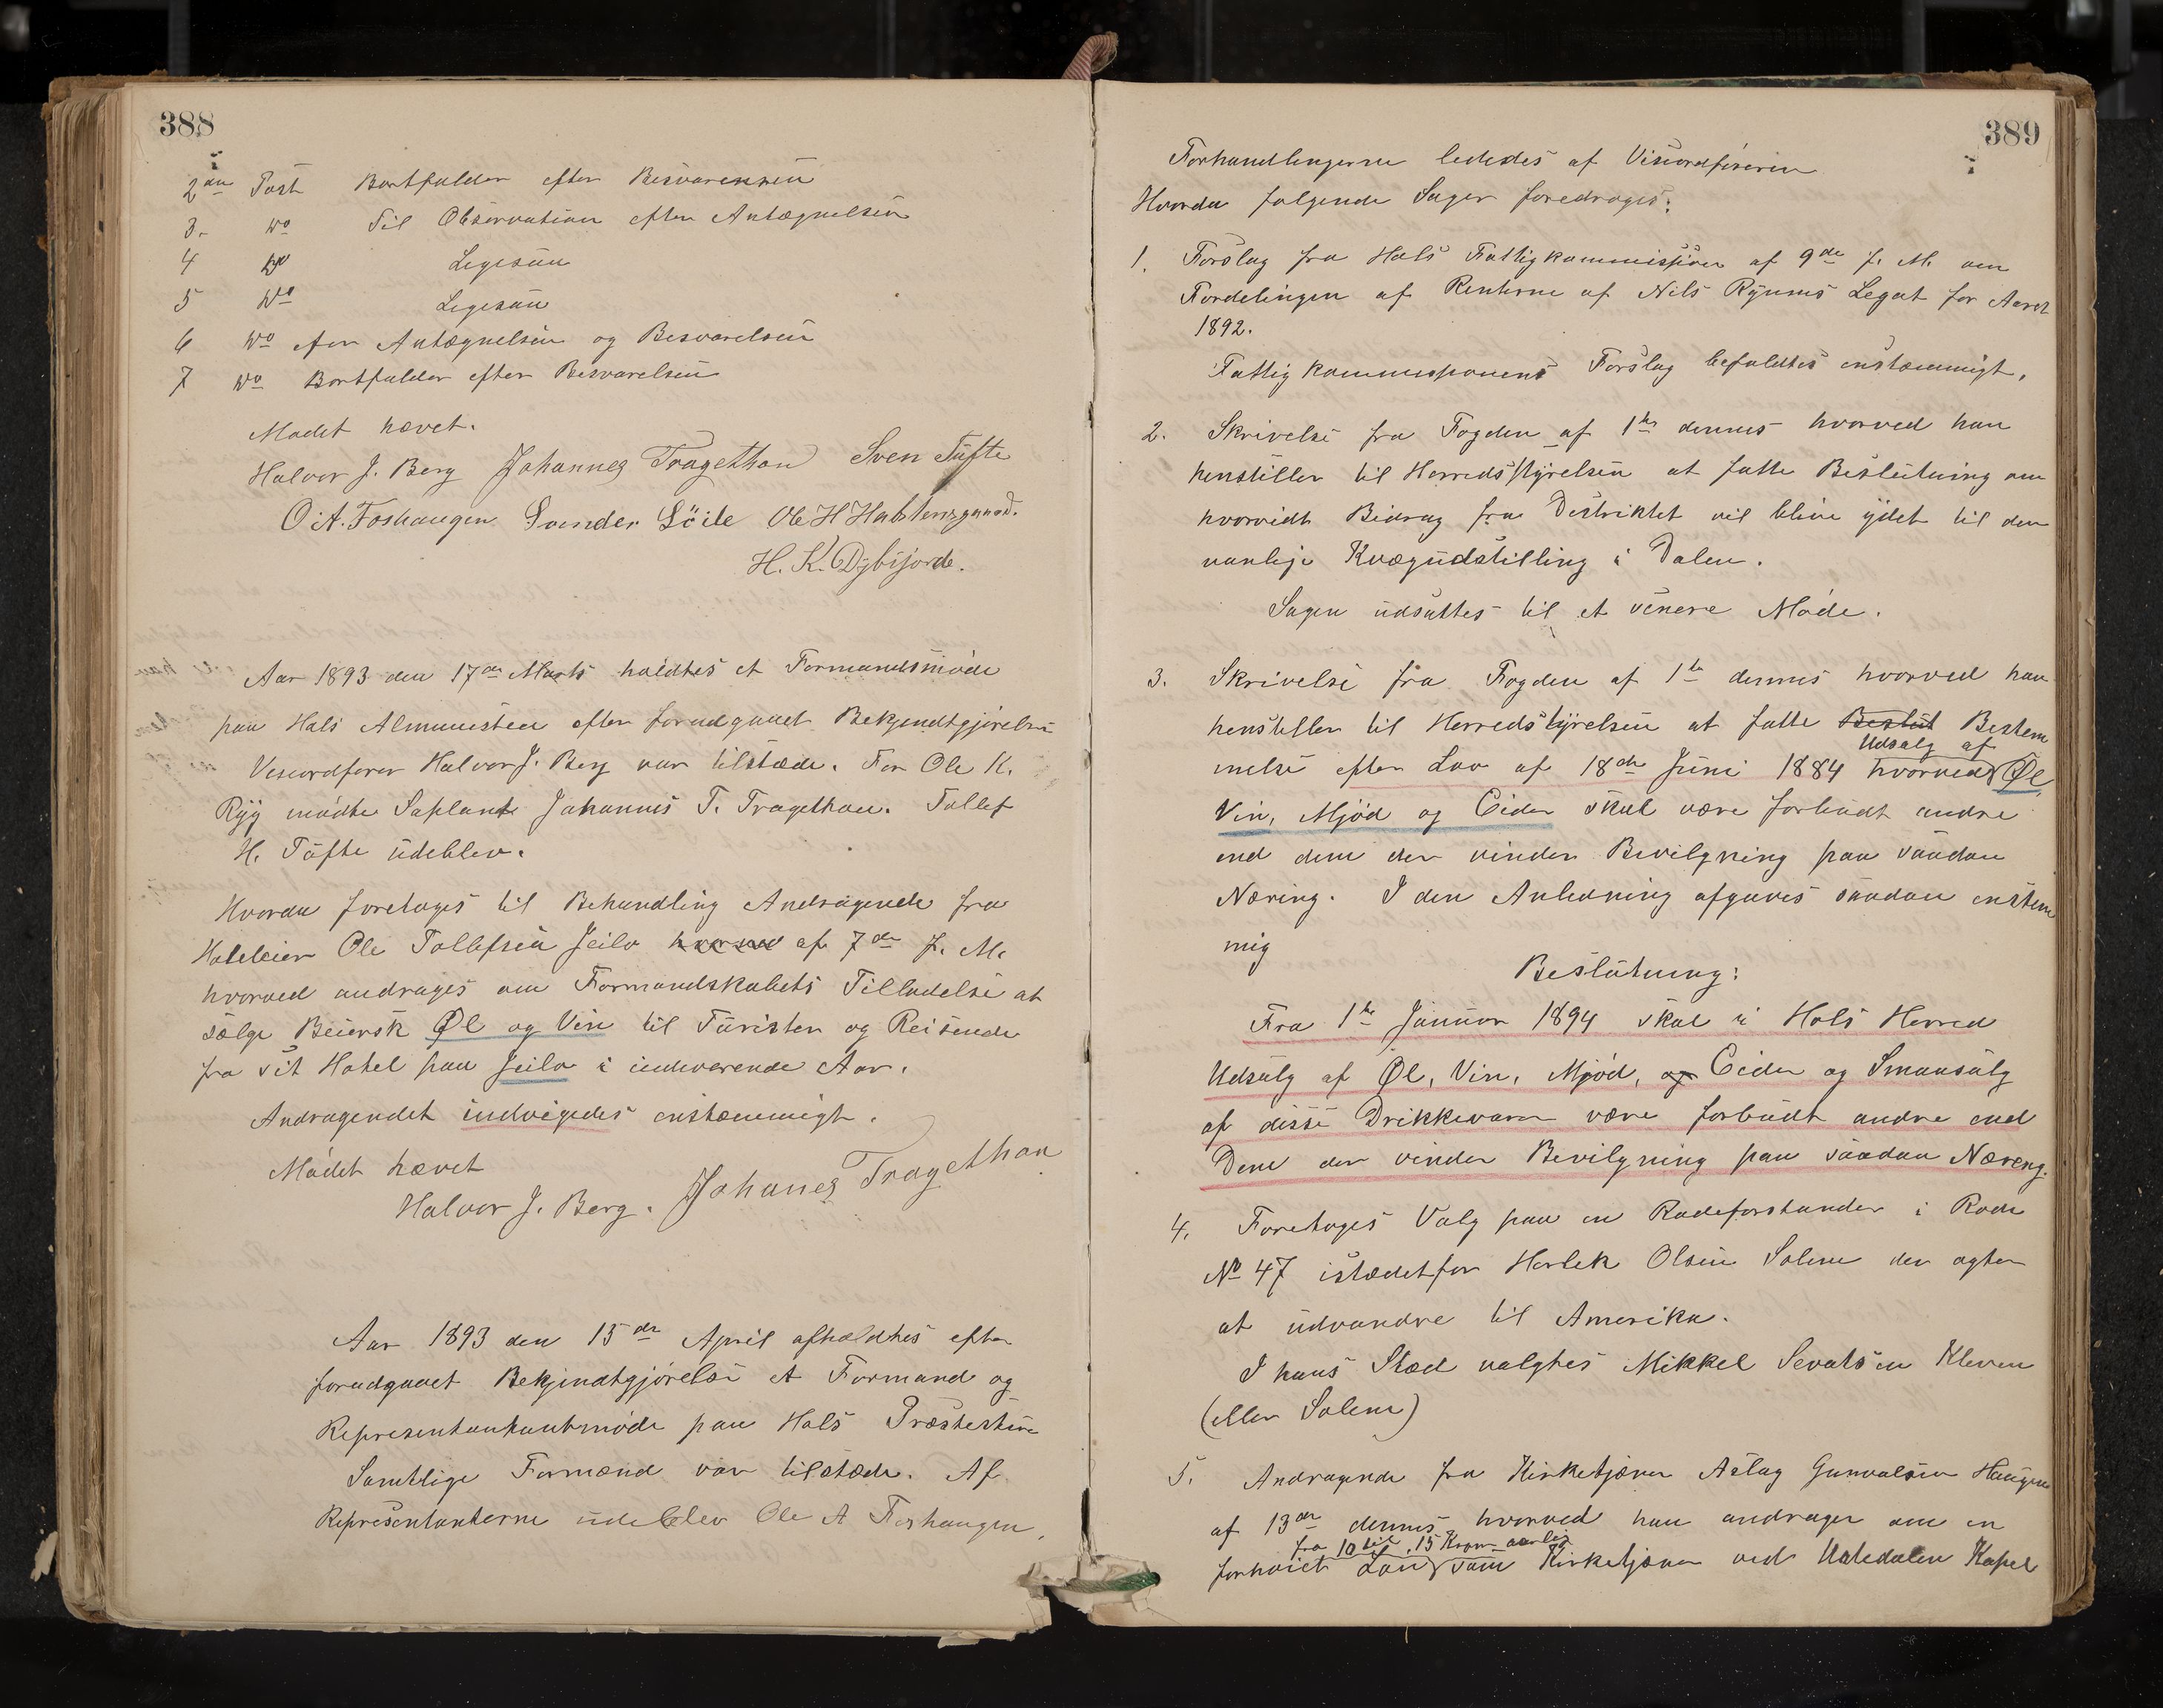 388
2den Post Bortfalder efter Besvarelsen
3. do Til Observation efter Antegnelsen
4 do Ligesaa
5 do Ligesaa
6 do efter Antegnelsen og Besvarelsen
7 do Bortfalder efter Besvarelsen
Mødet hævet.
Halvor J. Berg Johannes Tragethon Sven Tufte
O. A. Foshaugen Svender Løile Ole H Halstensgaard.
H. K. Dybsjorde.
Aar 1893 den 17de Marts holdtes et Formandsmøde
paa Hols Almuestue efter forudgaaet Bekjendtgjørelse
Viseordfører Halvor J. Berg var tilstæde. For Ole K.
Ryg mødte Suplant Johannes T. Tragethon. Tollef
H. Tufte udeblev.
Hvorda foretoges til Behandling Andragende fra
Hoteleier Ole Tollefsen Jeilo af 7de f. M.
hvorved andrages om Formandskabets Tilladelse at
sælge Beiersk Øl og Vin til Turister og Reisende
fra sit Hotel paa Jeilo i indeværende Aar.
Andragendet indvigedes enstæmmigt.
Mødet hævet
Halvor J. Berg. Johanes Tragethon
Aar 1893 den 15de April afholdtes efter
forudgaaet Bekjendtgjørelse et Formand og
Representantantmøde paa Hols Præstestue
Samtlige Formænd var tilstæde. Af
Representanterne udeblev Ole A Foshaugen.
389
Forhandlingerne lededes af Viseordføreren
Hvorda følgende Sager foredroges:
1. Forslag fra Hols Fattigkommission af 9de f. M. om
Fordelingen af Renterne af Nils Ryums Legat for Aaret
1892.
Fattigkommissionens Forslag bifaldtes enstæmmigt.
2. Skrivelse fra Fogden af 1ste dennes hvorved han
henstiller til Herredsstyrelsen at fatte Beslutning om
hvorvidt Bidrag fra Distriktet vil blive ydet til den
vanlige Kvægudstilling i Dalen.
Sagen udsattes til et senere Møde.
3. Skrivelse fra Fogden af 1ste dennes hvorved han
henstiller til Herredstyrelsen at fatte Beslut Bestem
Udsalg af
melse efter Lov af 18de Juni 1884 hvorved Øl,
Vin, Mjød og Cider skal være forbudt andre
end dem der vinder Bevilgning paa saadan
Næring. I den Anledning afgaves saadan enstem
mig
Beslutning:
Fra 1ste Januar 1894 skal i Hols Herred
Udsalg af Øl, Vin, Mjød, og Cider og Smaasalg
af disse Drikkevarer være forbudt andre end
Dem der vinder Bevilgning paa saadan Næreng.
4. Foretoges Valg paa en Rodeforstander i Rode
No 47 istædetfor Herlek Olsen Solem der agter
at udvandre til Amerika.
I hans Stæd valgtes Mikkel Sevatsen Kleven
(eller Solem)
5. Andragende fra Kirketjæner Aslag Gunvalsen Haugen
af 13de dennes hvorved han andrager om en
fra 10 til 15 Kron aarlig
forhøiet Løn som Kirketjæner ved Ustedalen Kapel